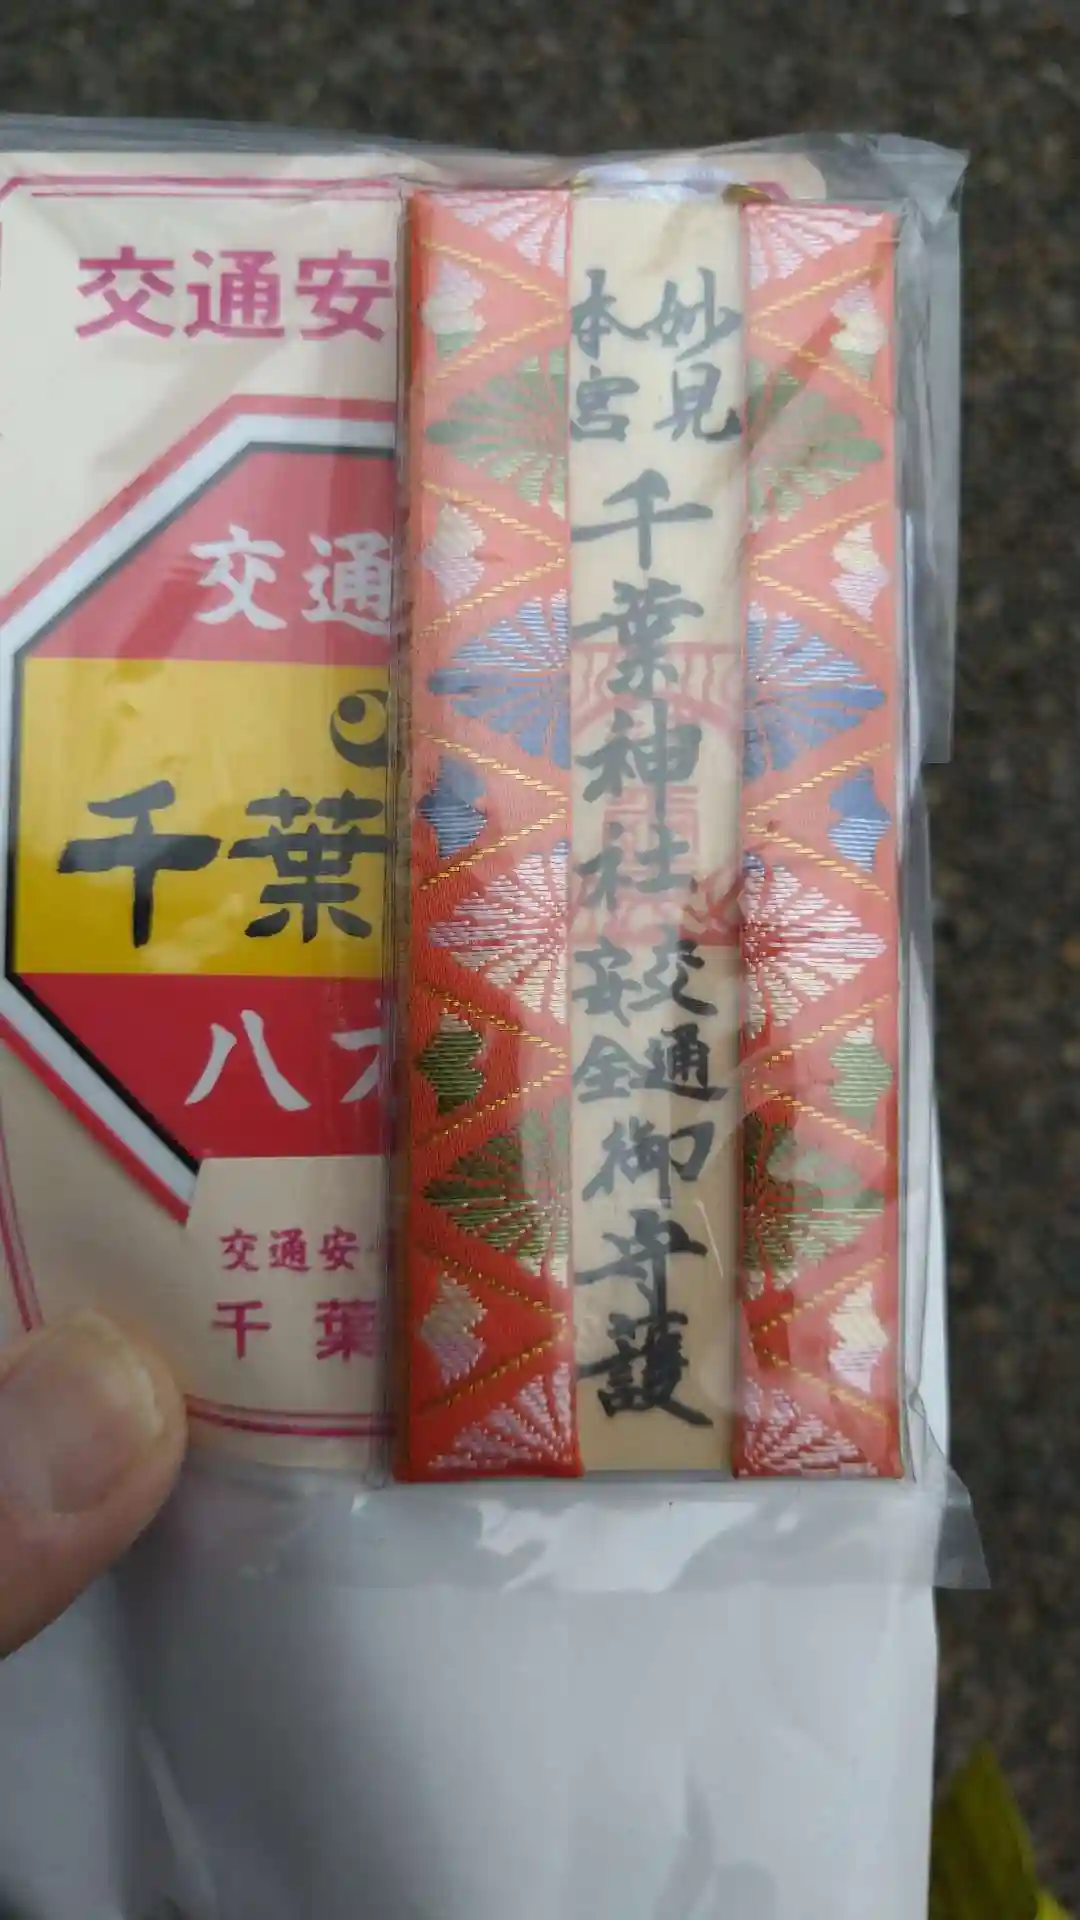 交通安
交通
千葉
八
交通安
千葉
妙見
本宮
千葉神社
交通
安全
御守護